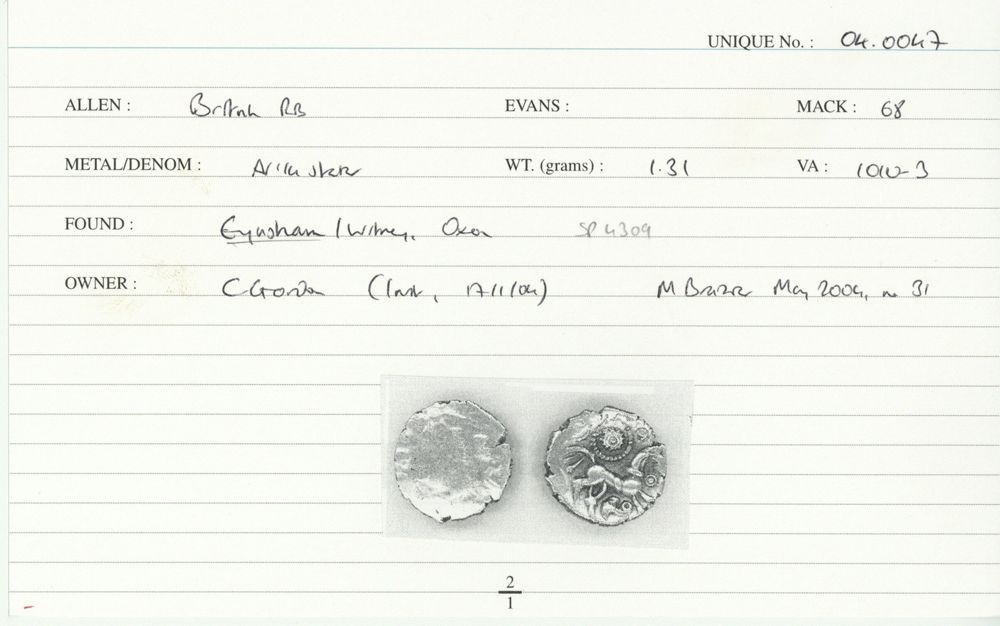 UNIQUE No. : 04.0047
ALLEN : British RB EVANS : MACK : 68
METAL/DENOM : WT. (grams) : 1.31 VA : 1010-3
FOUND : Eynsham / Witney, Oxon SP 4309
OWNER : C Gordon ( , 17/1/04) M May 2004, no 31
2
1